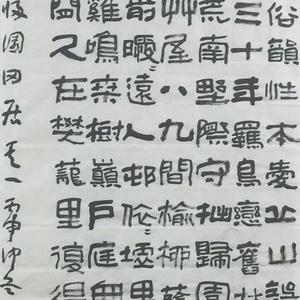 俗韻性本愛丘山誤
三十年羈鳥戀舊林
荒南野際守拙歸園
艸屋八九間榆柳蔭
前曖〻遠人邨依〻墟里
雞鳴桑樹巔戶庭無
閒久在樊籠里復得
歸園田居其一丙申仲冬